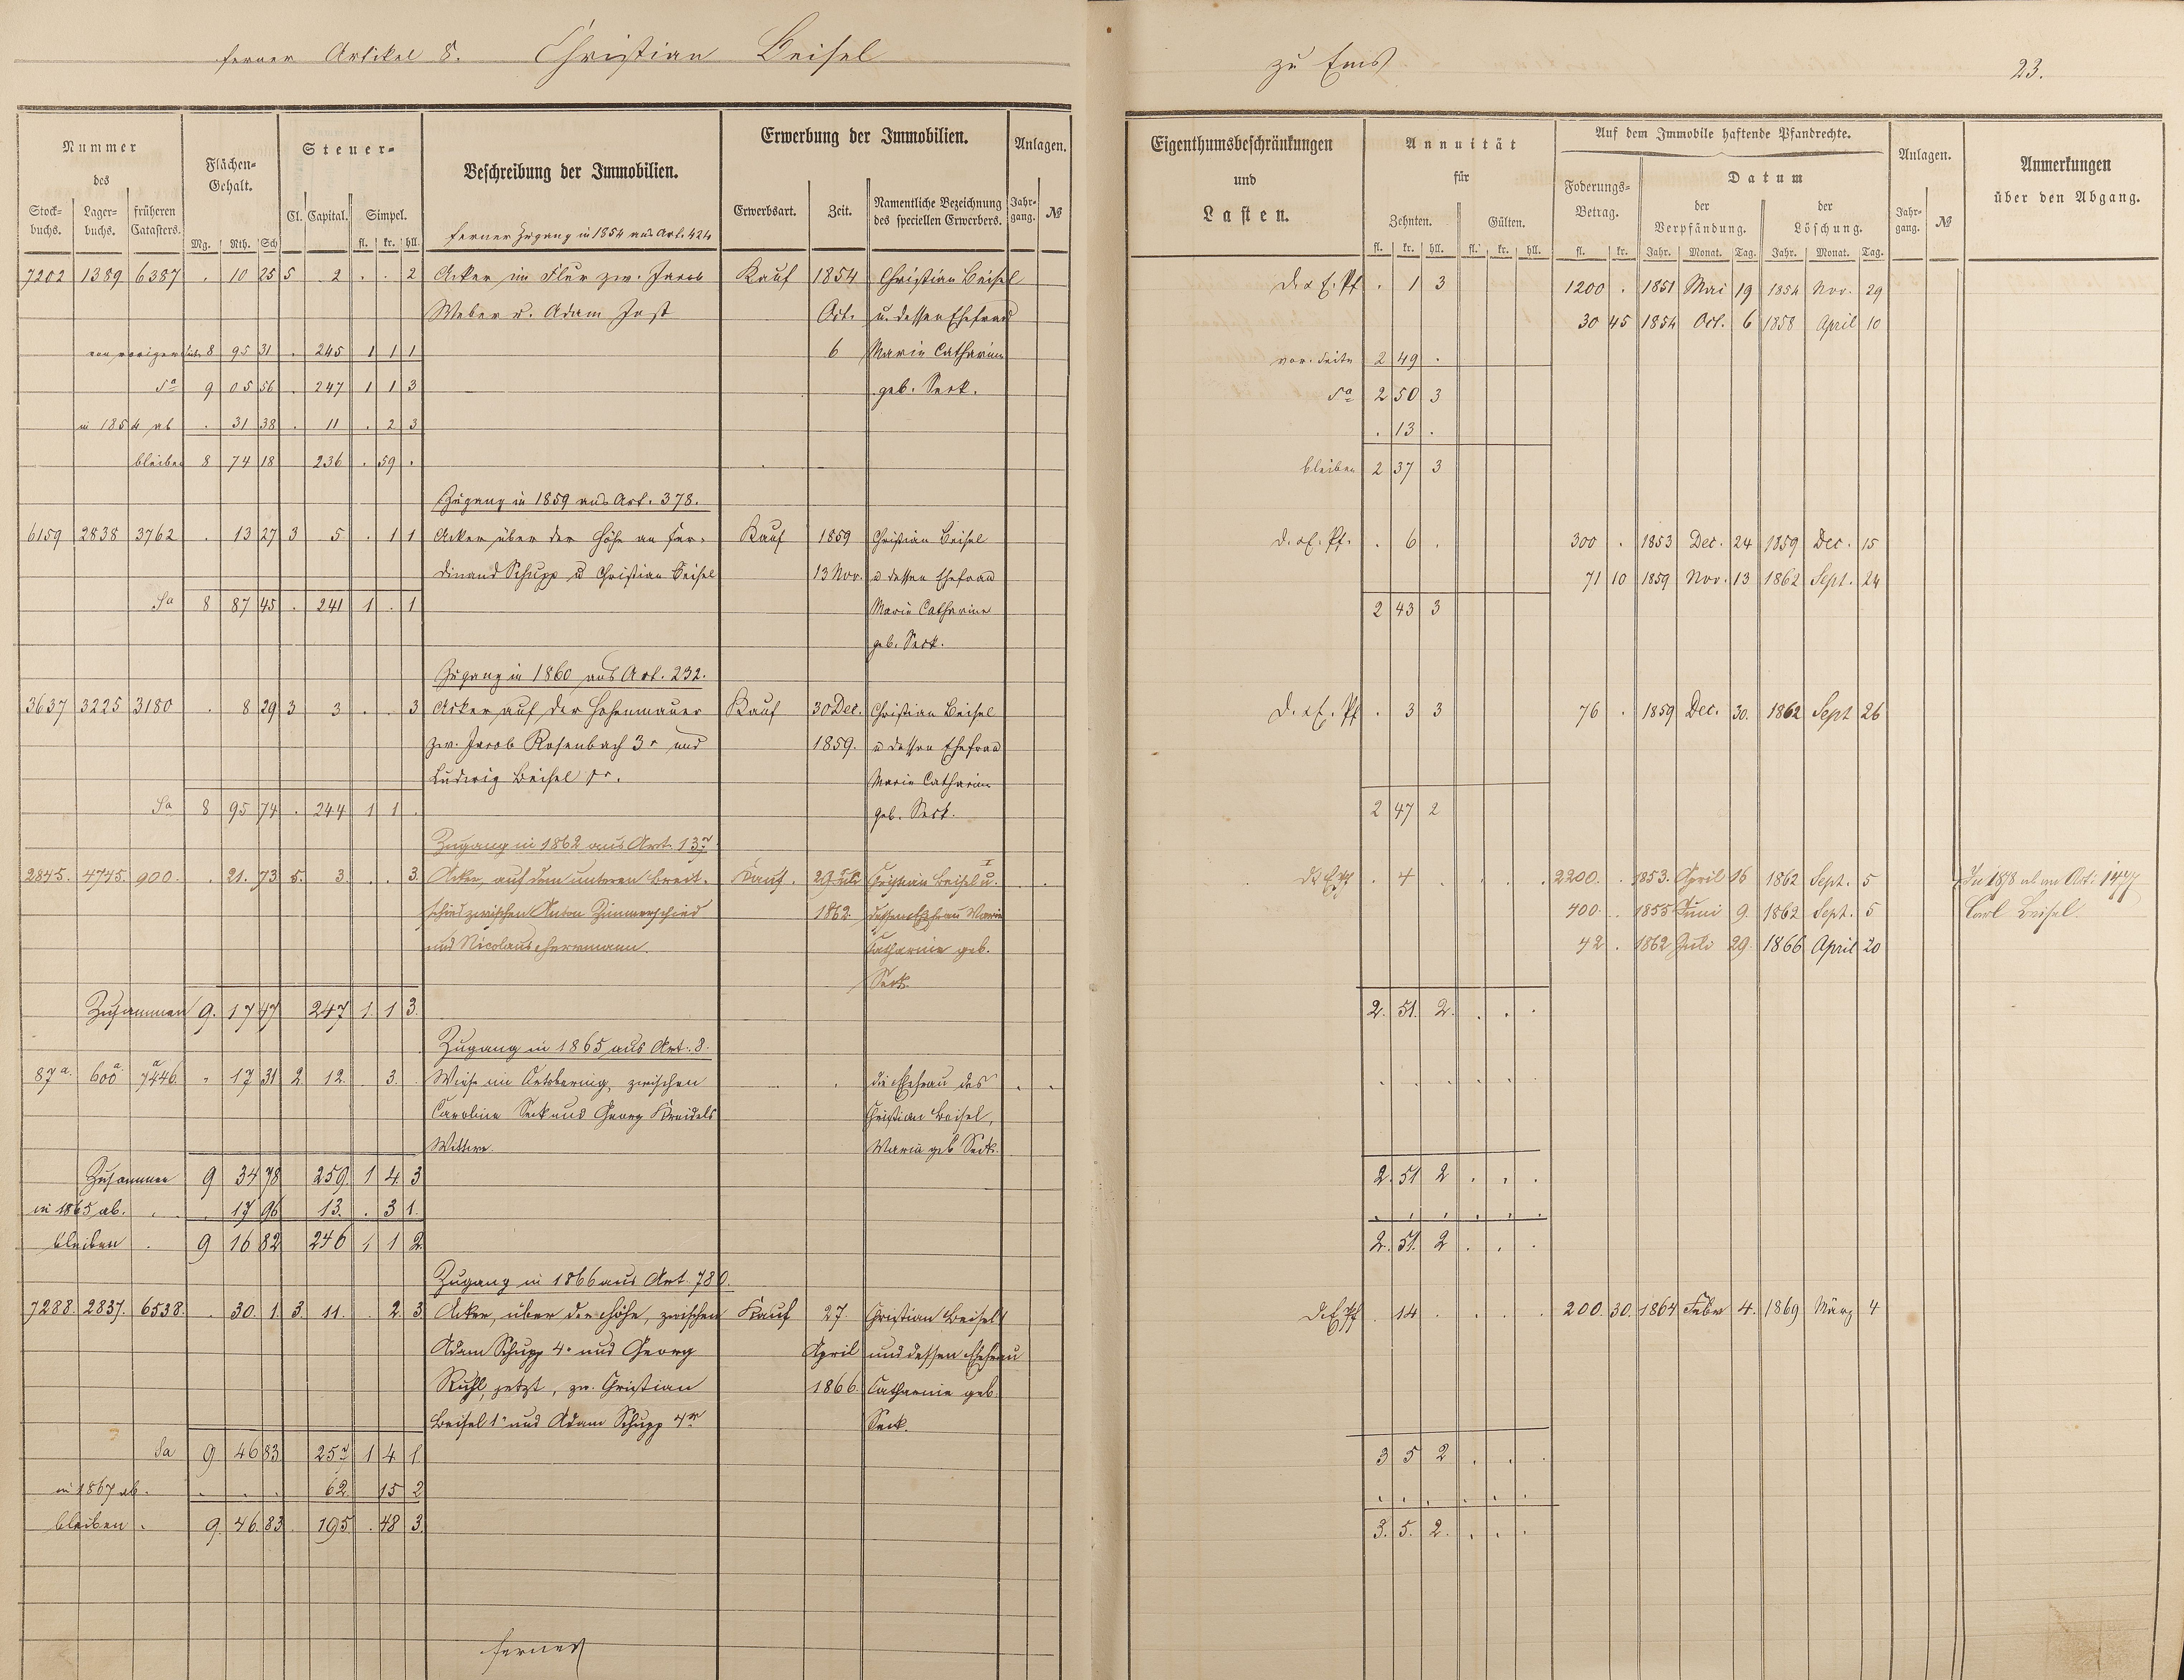 ferner Artikel 8. Christian Beisel
zu Ems 23.
Nummer des
Stockbuchs. Lagerbuchs. früheren Catasters.
Flächen-Gehalt.
Mg. Rth. Sch
Steuer-
Cl. Capital. Simpel.
fl. kr. hll.
Beschreibung der Immobilien.
ferner Zugang in 1854 aus Art. 424
Erwerbung der Immobilien.
Erwerbsart. Zeit. Namentliche Bezeichnung des speciellen Erwerbers.
Anlagen.
Jahrgang. №
Eigenthumsbeschränkungen und Lasten.
Annuität für
Zehnten. Gülten.
fl. kr. hll. fl. kr. hll.
Auf dem Immobile haftende Pfandrechte.
Foderungs-Betrag.
fl. kr.
Datum
der Verpfändung. der Löschung.
Jahr. Monat. Tag. Jahr. Monat. Tag.
Anlagen.
Jahrgang. №
Anmerkungen über den Abgang.
7202 1389 6387 . 10 25 5 2 . . 2 Acker im Flur zw. Jacob Kauf 1854 Christian Beisel
Weber u. Adam Jost Oct. u. dessen Ehefrau
von voriger Seite 8 95 31 . 245 1 1 1 6 Marie Catharine
Sa 9 05 56 . 247 1 1 3 geb. Seck.
in 1854 ab . 31 38 . 11 . 2 3
bleiben 8 74 18 236 . 59 .
Zugang in 1859 aus Art. 378.
6159 2838 3762 . 13 27 3 5 . 1 1 Acker über der Höhe an Fer- Kauf 1859 Christian Beisel
dinand Schupp u Christian Beisel 13 Nov. u dessen Ehefrau
Sa 8 87 45 . 241 1 . 1 Marie Catharine
geb. Seck.
Zugang in 1860 aus Art. 232.
3637 3225 3180 . 8 29 3 3 . . 3 Acker auf der Hohenmauer Kauf 30 Dec. Christian Beisel
zw. Jacob Rosenbach 3r und 1859. u dessen Ehefrau
Ludwig Beisel Marie Catharine
Sa 8 95 74 . 244 1 1 . geb. Seck.
Zugang in 1862 aus Art. 137
2845. 4745. 900. . 21. 73 5. 3. . . 3. Acker, auf dem unteren Breit- Kauf. 29 Juli Christian Beisel I u.
schied zwischen Anton Zimmerschied 1862. dessen Ehefrau Marie
und Nicolaus Herrmann. Catharine geb.
Seck.
Zusammen 9. 17 47 247 1. 1 3.
Zugang in 1865 aus Art. 8.
87a. 600a 7446a . 17 31 2. 12. . 3. . Wiese im zwischen . . die Ehefrau des . .
Caroline Seck und Georg Kreidels Christian Beisel,
Wittwe. Maria geb Seck.
Zusammen 9 34 78 259. 1 4 3
in 1865 ab. . . 17 96 13. . 3 1.
bleiben . 9 16 82 246 1 1 2.
Zugang in 1866 aus Art. 780.
7288. 2837. 6538. . 30. 1. 3. 11. . 2. 3. Acker, über der Höhe, zwischen Kauf 27. Christian Beisel 1
Adam Schupp 4r und Georg April und dessen Ehefrau
Ruhl, jetzt, zw. Christian 1866. Catharine geb.
Beisel 1r und Adam Schupp 4r Seck.
Sa 9 46 83 257 1 4 1.
in 1867 ab. . . . 62. 15 2
bleiben . 9. 46. 83. 195. . 48 3.
ferner
D. z. E. Pf . 1 3 1200 . 1851 Mai 19 1854 Nov. 29
30 45 1854 Oct. 6 1858 April 10
vor. Seite 2 49 .
Sa 2 50 3
. 13 .
bleiben 2 37 3
D. z. E. Pf. . 6 . 300 . 1853 Dec. 24 1859 Dec. 15
71 10 1859 Nov. 13 1862 Sept. 24
2 43 3
D. z. E. Pf . 3 3 76 . 1859 Dec. 30. 1862 Sept 26
2 47 2
D z E Pf . 4 . . . . 2200. . 1853. April 16 1862 Sept. 5 In 1878 ab an Art. 1477
400. . 1855 Juni 9. 1862 Sept. 5 Carl Beisel.
42 . 1862 Juli 29. 1866 April 20
2. 51. 2. . . .
. . . . . .
2. 51 2 . . .
. . . . . .
2. 51. 2 . . .
D z E Pf . 14 . . . . 200. 30. 1864 Febr 4. 1869 März 4
3 5 2 . . .
. . . . . .
3. 5. 2. . . .